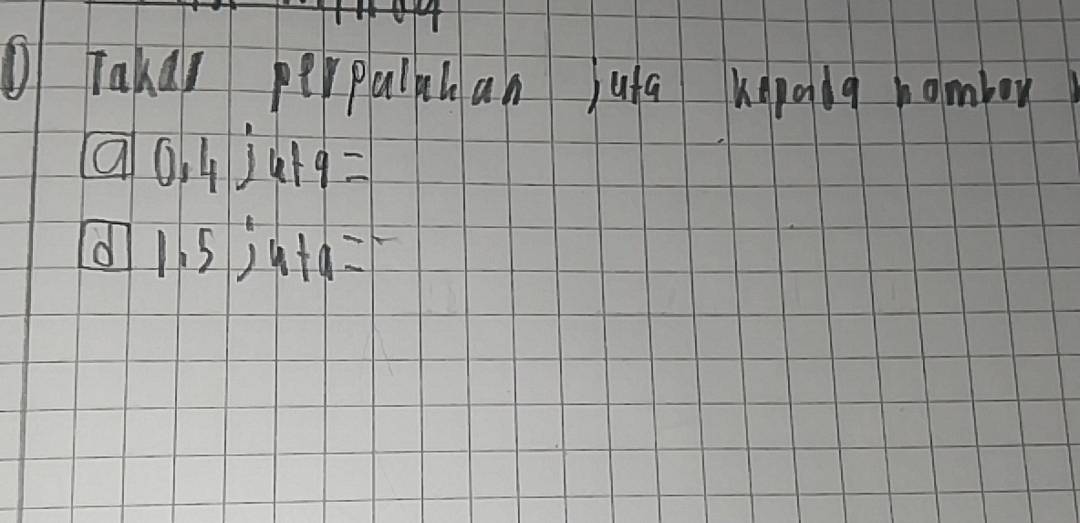 ① Takar perpuluhan juta kepada nombor
a 0.4 juta =
d 1.5 juta =